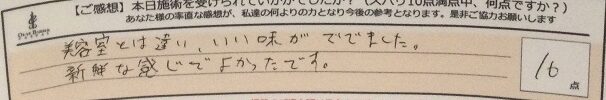 【ご感想】本日施術を受けられていかがでしたか?(ズバリ10点満点中、何点ですか?)
あなた様の率直な感想が、私達の何よりの力となり今後の参考となります。是非ご協力お願いします
美容室とは違い、いい味がでてました。
新鮮な感じでよかったです。
10点